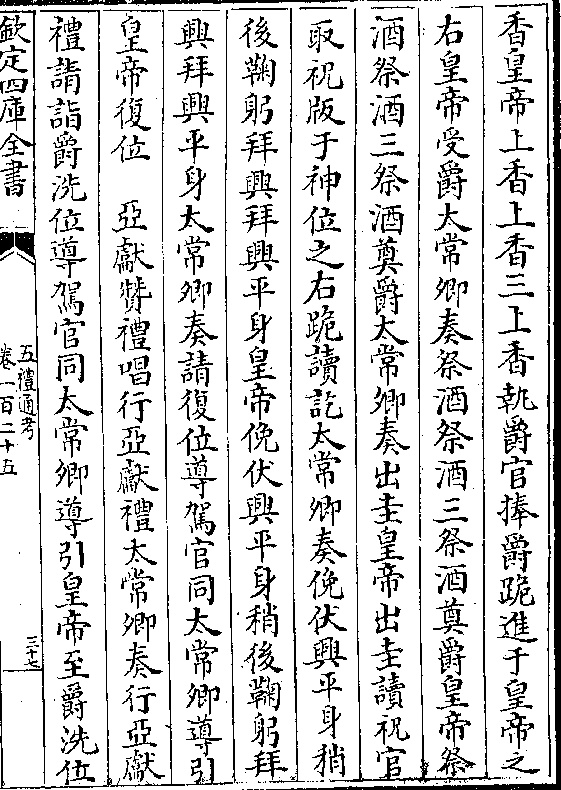 香皇帝上香上香三上香執爵官捧爵跪進于皇帝之
右皇帝受爵太常卿奏祭酒祭酒三祭酒奠爵皇帝祭
酒祭酒三祭酒奠爵太常卿奏出圭皇帝出圭讀祝官
取祝版于神位之右跪讀訖太常卿奏俛伏興平身稍
後鞠躬拜興拜興平身皇帝俛伏興平身稍後鞠躬拜
興拜興平身太常卿奏請復位導駕官同太常卿導引
皇帝復位　亞獻贊禮唱行亞獻禮太常卿奏行亞獻
禮請詣爵洗位導駕官同太常卿導引皇帝至爵洗位
欽定四庫全書
五禮通考
卷一百二十五
三十七